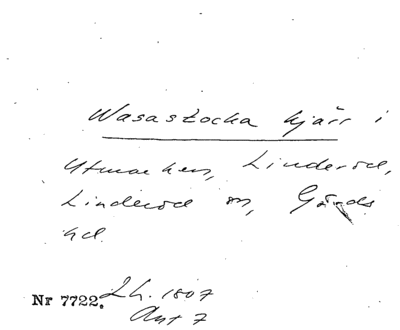 Wasastocka kjärr i
Utmarken, Linderöd,
Linderöd sn, Gärds
hd.
Nr 7722. Lh. 1807
Akt 7